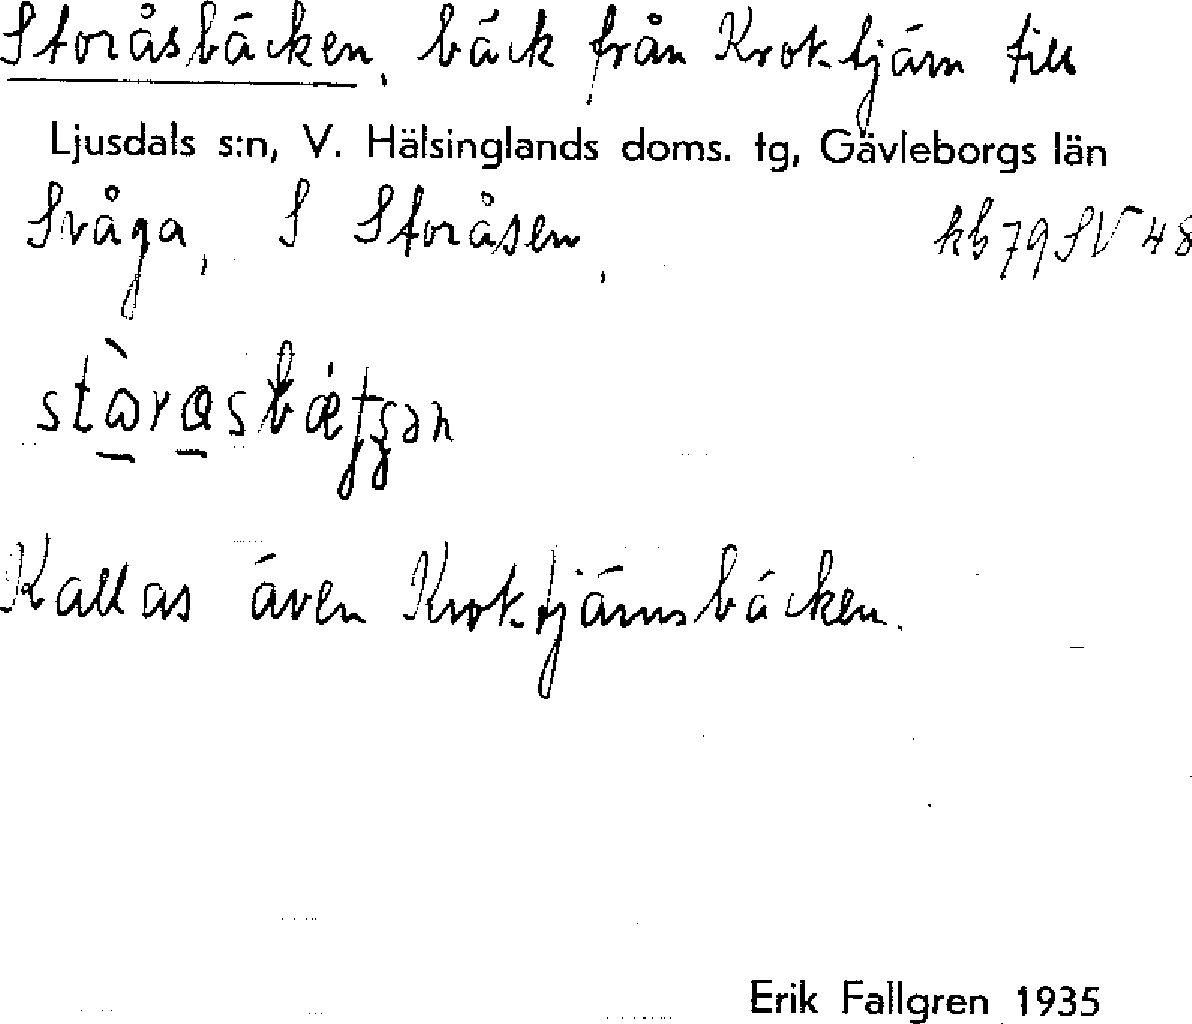 Storåsbäcken, bäck från Kroktjärn till
Ljusdals s:n, V. Hälsinglands doms. tg, Gävleborgs län
Svåga, S Storåsen, kb 79 SV 48
Kallas även Kroktjärnsbäcken.
Erik Fallgren 1935